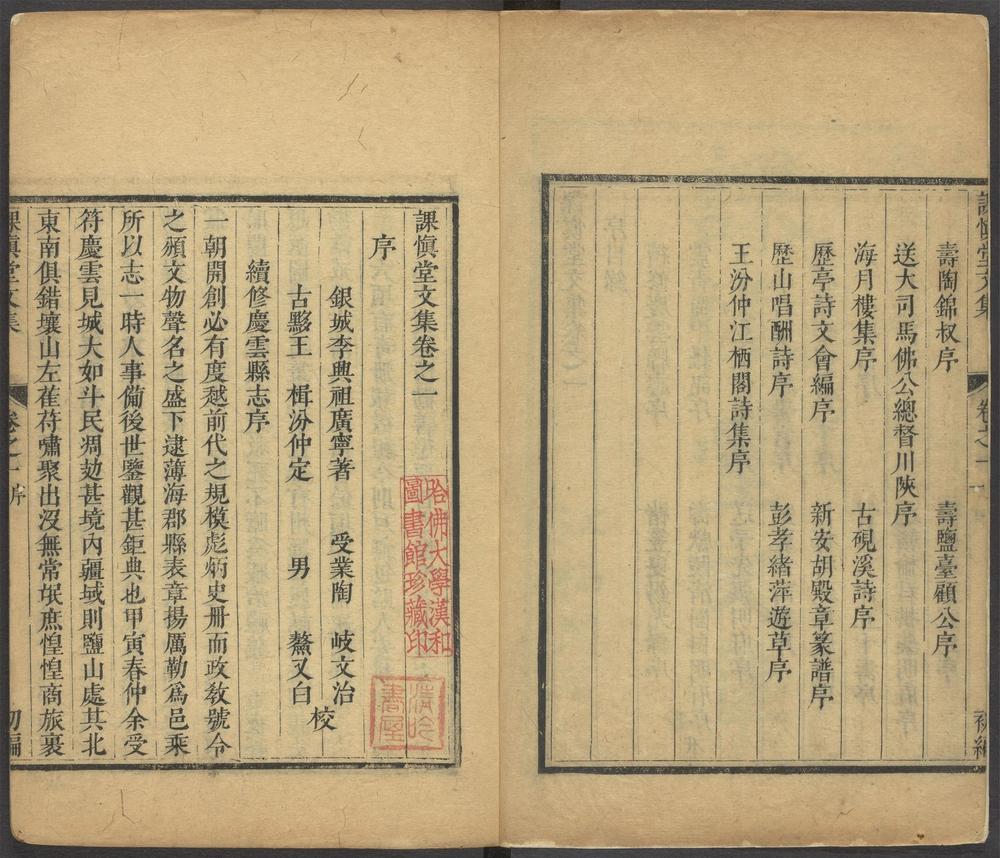 課慎堂文集
卷之一
初編
壽陶錦叔序
壽鹽臺顧公序
送大司馬佛公總督川陝序
海月樓集序
古硯溪詩序
歷亭詩文會編序
新安胡殿章篆譜序
歷山唱酬詩序
彭孝緒萍遊草序
王汾仲江栖閣詩集序
課慎堂文集卷之一
序
銀城李興祖廣寧著
受業陶
岐文治
古黟王
楫汾仲定
男
鰲又白
校
續修慶雲縣志序
一朝開創必有度越前代之規模彪炳史冊而政敎號令
之頻文物聲名之盛下逮薄海郡縣表章揚厲勒爲邑乘
所以志一時人事備後世鑒觀甚鉅典也甲寅春仲余受
符慶雲見城大如斗民凋攰甚境內疆域則鹽山處其北
東南俱錯壤山左萑苻嘯聚出沒無常氓庶惶惶商旅裹
課慎堂文集
卷之一
序
初編
哈佛大學漢和
圖書館珍藏印
清吟
書屋